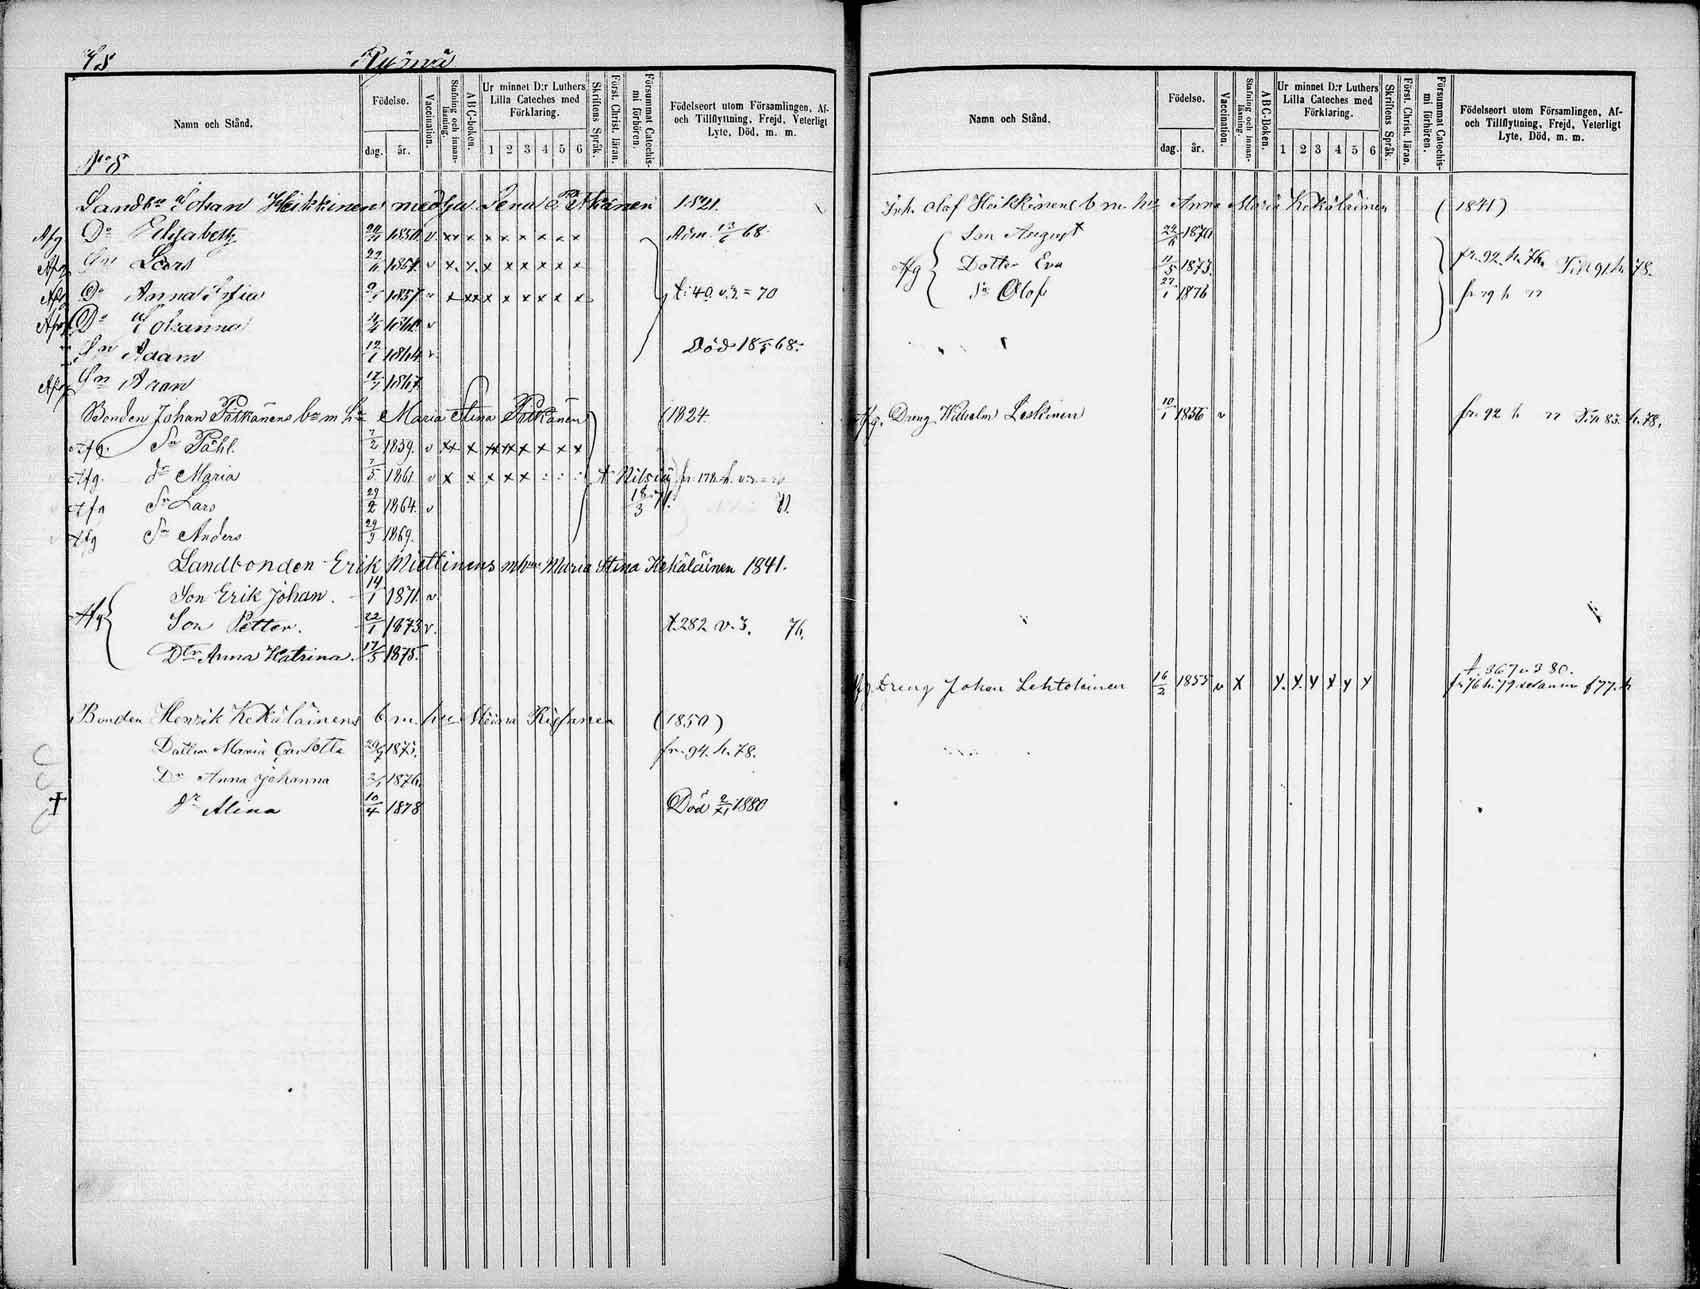 78 Rysmä
Namn och Stånd.
Födelse.
dag. år.
Vaccination.
Stafning och innanläsning.
ABC-boken.
Ur minnet D:r Luthers Lilla Cateches med Förklaring.
1 2 3 4 5 6
Skriftens Språk.
Först. Christ. läran.
Försummat Catechismi förhören.
Födelseort utom Församlingen, Af- och Tillflyttning, Frejd, Veterligt Lyte, Död, m. m.
No 8
Landbn Johan Heikkinens med hu. Lena Pitkänen 1821.
Afg Dr Elisabeth 1850. v x x x x x x x x Adm. 13/6 68.
Afg Sn Lars v x x x x x x x x
Afg Dr Anna Sofia 1857 v x xx x x x x x x t. 40 v. 3. = 70
Afg Dr Johanna v
Sn Adam 12/1 1864. v. Död 18 5/5 68.
Afg Sn Aram 17/7 1867
Bonden Johan Pitkänens bm hu Maria Stina Pitkänen (1824
Afg. Sn Påhl 7/2 1859. v xx x xx x x x x x
Afg. dr Maria 7/5 1861 v x x x x x : : : t. Nilsiä fr. 178. h. v. 3.
Afg Sn Lars 29/2 1864. v 18/3 71.
Afg Sn Anders 29/9 1869.
Landbonden Erik Miettinens m hu Maria Stina Kekäläinen 1841.
Son Erik Johan. 14/1 1871. v.
Afg Son Petter. 22/1 1873 v. t. 282 v. 3. 76.
Dtr Anna Katrina. 17/5 1875.
Bonden Henrik Kekäläinens b m. hu (1850)
Dotter Maria Carlotta 1873. fr. 94. h. 78.
Dr Anna Johanna 1876.
† dr Alina 10/4 1878 Död 9/XI 1880
Namn och Stånd.
Födelse.
dag. år.
Vaccination.
Stafning och innanläsning.
ABC-Boken.
Ur minnet D:r Luthers Lilla Cateches med Förklaring.
1 2 3 4 5 6
Skriftens Språk.
Först. Christ. läran.
Försummat Catechismi förhören.
Födelseort utom Församlingen, Af- och Tillflyttning, Frejd, Veterligt Lyte, Död, m. m.
Inh. Olaf Heikkinens b m. hu Anna Maria Kekäläinen (1841)
Son August 1870
Afg Dotter Eva 11/5 1873. fr. 92. h. 76. Till 91. h. 78.
Sn Olof 27/1 1876 fr 79 h 77
Afg. Dreng Wilhelm Leskinen 10/1 1856 v fr. 92 h 77 T. h 83. h. 78.
Afg Dreng Johan Lehtolainen 16/2 1855 v x x. x. x x x x t. 367 v 3 80.
fr 76 h. 79